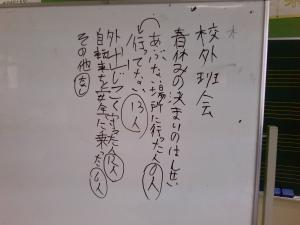 校外班会
春休みの決まりのはんせい
あぶない場所に行った人0人
行ってない13人
外出じこく守った人13人
自転車を安全に乗った0人
その他なし